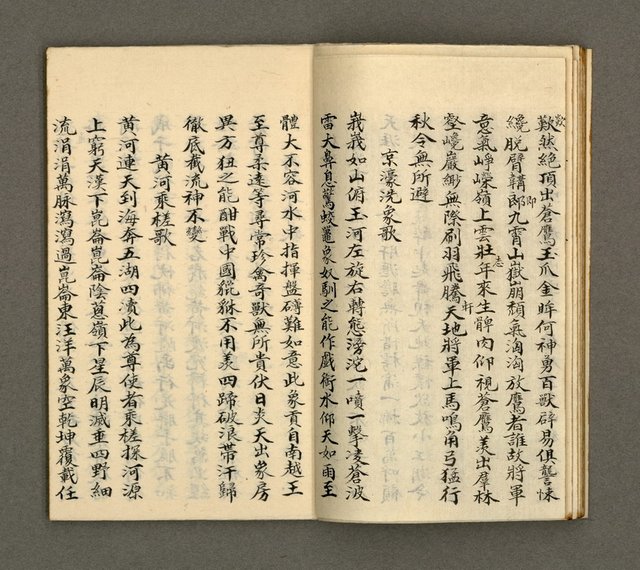 歘然絕頂出蒼鷹玉爪金眸何神勇百獸辟易俱讋悚
纔脫臂鞲即九霄山嶽崩頹氣洶洶放鷹者誰故將軍
意氣崢嶸嶺上雲壯年來生髀肉仰視蒼鷹羨出羣林
壑巉巖鄉無際刷羽飛騰天地將軍上馬鳴角弓猛行
秋令無所避
京濠洗象歌
峩峩如山俯玉河左旋右轉態滂沱一噴一擊凌蒼波
雷大鼻息驚蛟鼍象奴馴之能作戲銜水仰天如雨至
體大不容河水中指揮盤礴難如意此象貢自南越王
至尊柔遠等尋常珍禽奇獸無所貴伏日炎天出象房
異方狃之能酣戰中國貔貅不用羨四蹄破浪帶汗歸
徹底截流神不變
黃河乘槎歌
黃河連天到海奔五湖四瀆此為尊使者乘槎探河源
上窮天漢下崑崙崑崙陰蔥嶺下星辰明滅垂四野細
流涓涓萬脉瀉瀉過崑崙東汪洋萬象空乾坤覆載任